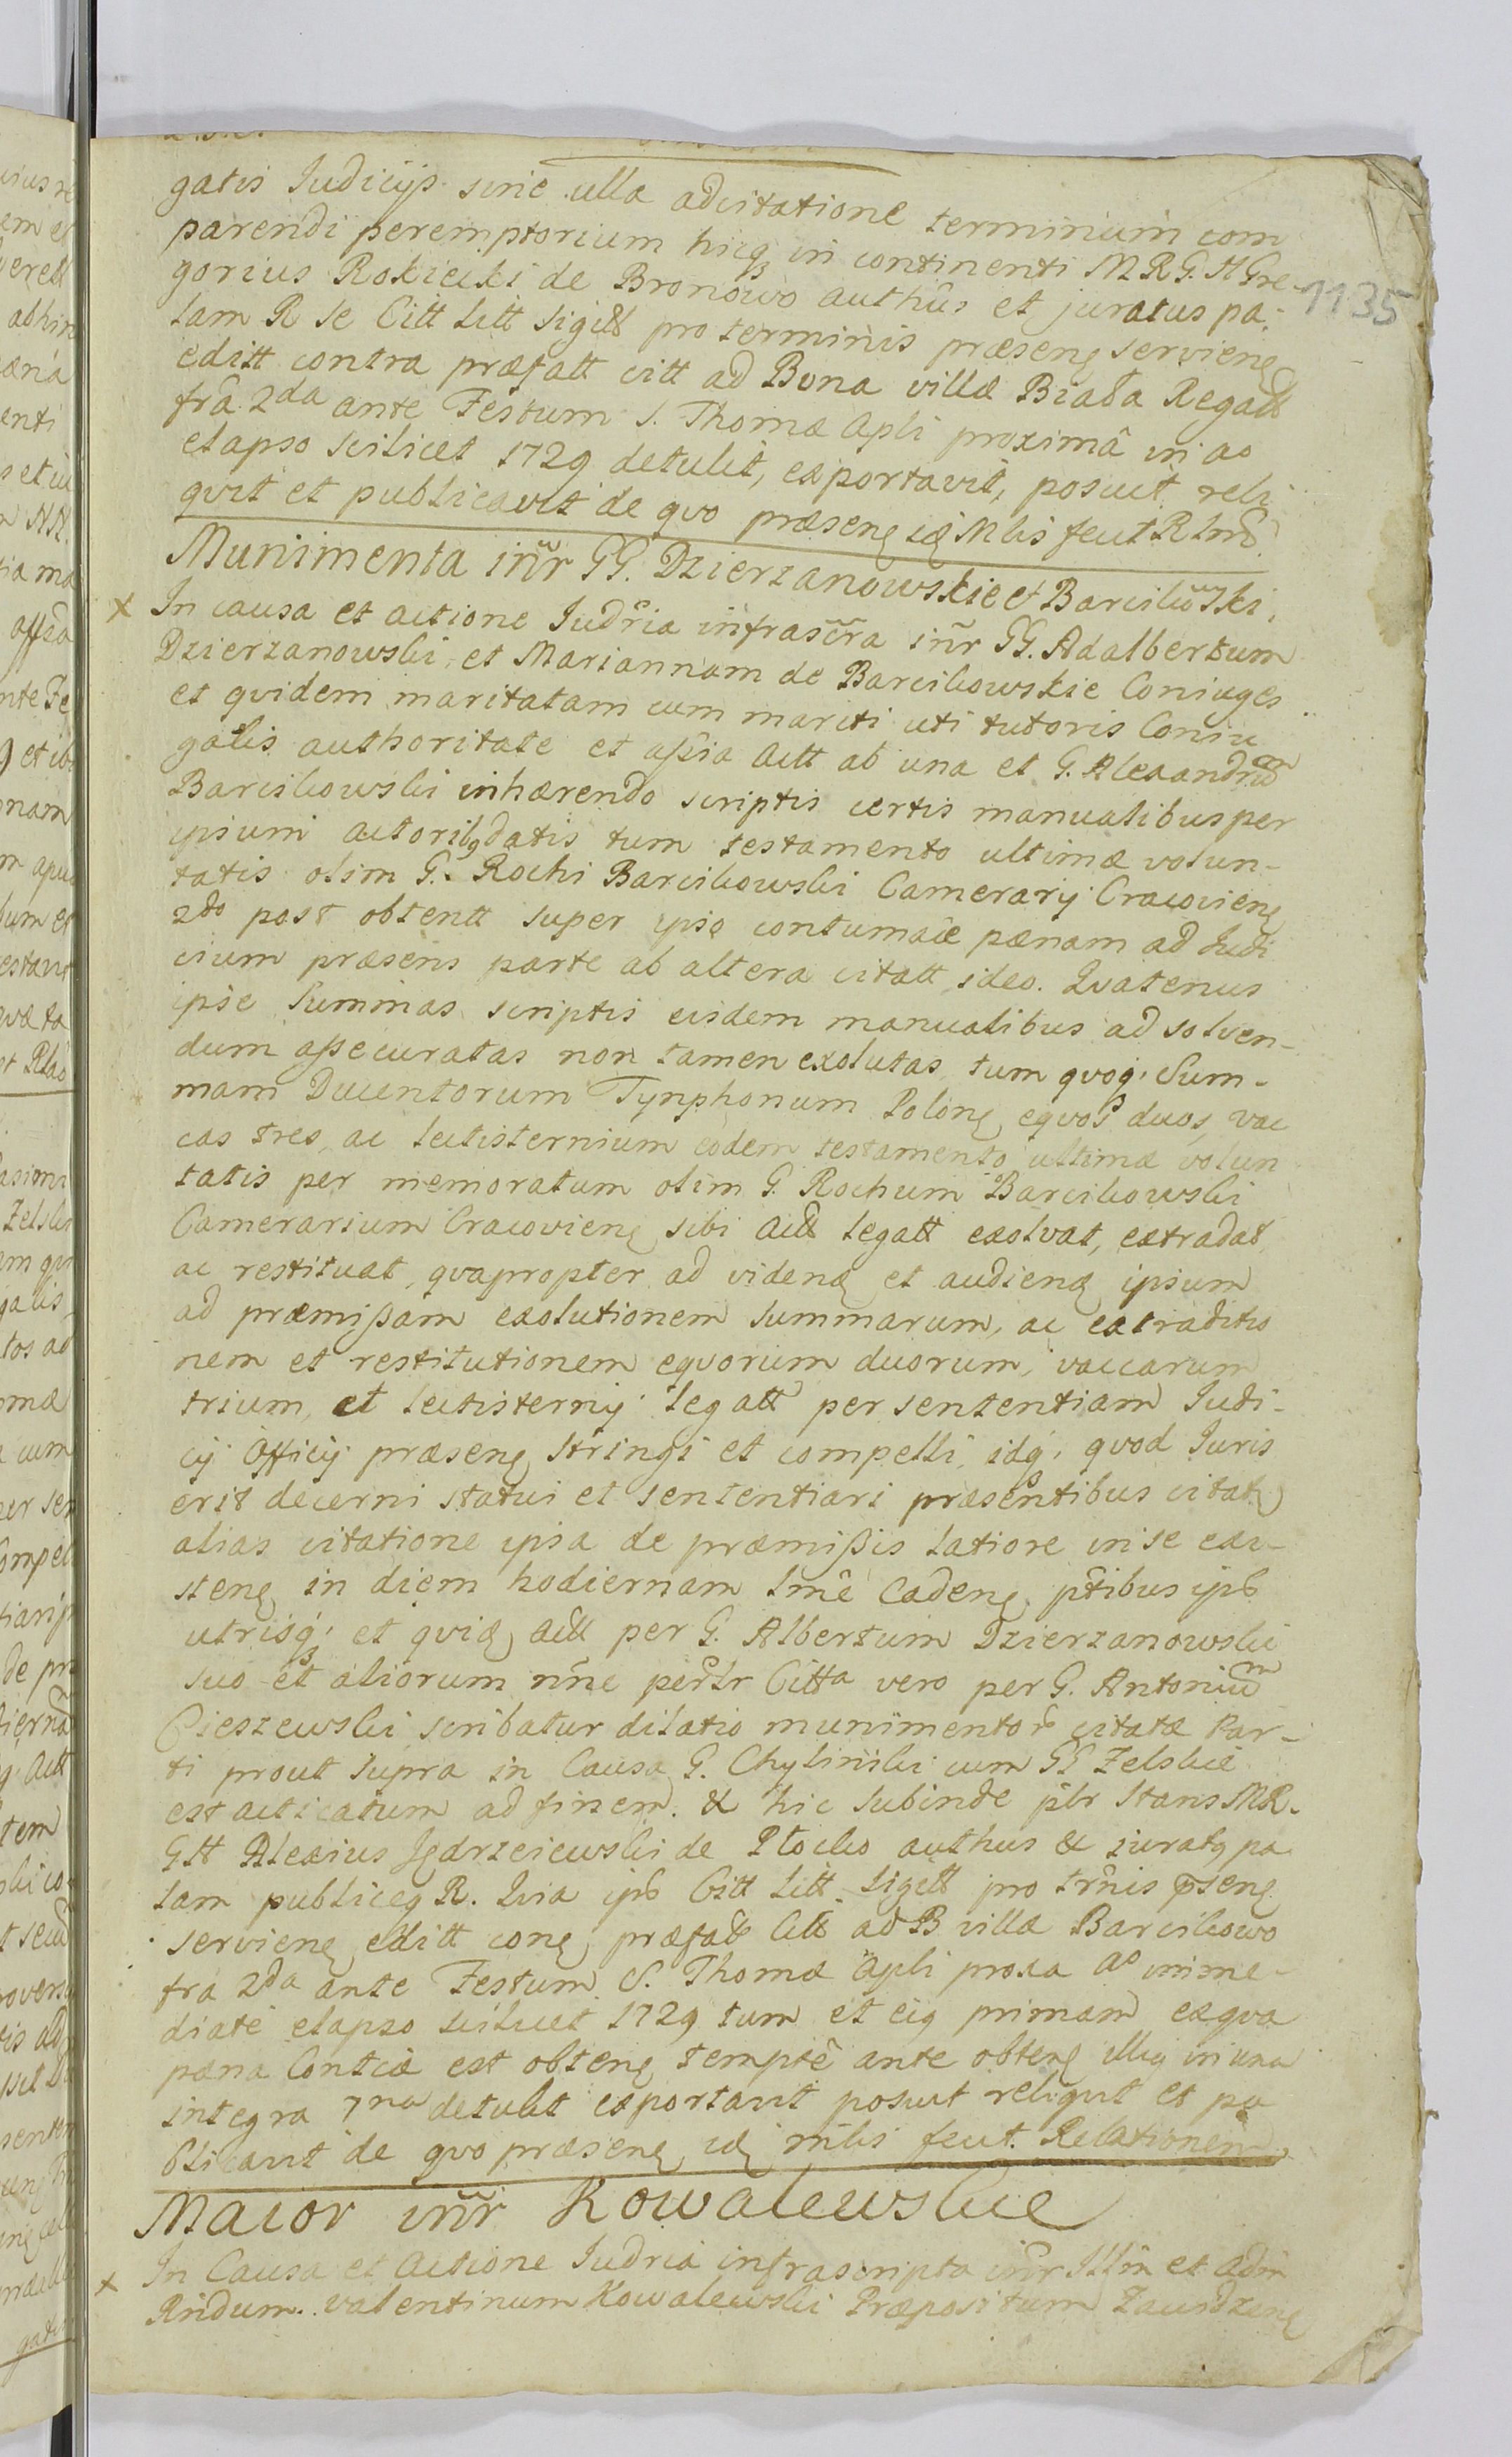 gatis Judicijs sine ulla adcitatione terminum com
parendi peremptorium hicq in continenti MRG. A Gre-
1135
gorius Rokicki de Bronowo authus et juratus pa-
lam R se Citt Litt Sigill pro terminis præseng servieng
editt contra præfatt citt ad Bona villæ Biała Regall
frâ 2da ante Festum S. Thomæ Apli proximâ in ao
elapso scilicet 1729 detulit, exportavit, posuit reli
qvit et publicavit de qvo præseng id Mlis fecit R lnê
Munimenta inr GG. Dzierzanowskie et Barcikowski.
x In causa et actione Judria infrascra inr GG. Adalbertum
Dzierzanowski, et Mariannam de Barcikowskie Coniuges
et qvidem maritatam cum mariti uti tutoris Coniu
galis authoritate et assia Actt ab una et G. Alexandrum
Barcikowski inhærendo scriptis certis manualibus per
ipsum actorib9 datis tum testamento ultimæ volun-
tatis olim G. Rochi Barcikowski Camerarij Cracovieng
2do post obtentt super ipso contumaciæ pænam ad Judi
cium præsens parte ab altera citatt ideo. Qvatenus
ipse Summas scriptis eisdem manualibus ad solven-
dum assecuratas non tamen exolutas, tum qvoq Sum-
mam Ducentorum Tynphonum Polong eqvos duos, vac
cas tres, ac lectisternium eodem testamento ultimæ volun
tatis per memoratum olim G. Rochum Barcikowski
Camerarium Cracovieng sibi Actt legatt exolvat, extradat
ac restituat, qvapropter ad videnđ et audienđ ipsum
ad præmissam exolutionem summarum, ac extraditio
nem et restitutionem eqvorum duorum, vaccarum
trium, et lectisternij legatt per sententiam Judi-
cij Officij præseng stringi et compelli idq qvod Juris
erit decerni statui et sententiari præsentibus citatg
alias citatione ipsa de præmissis latiore in se exi-
steng in diem hodiernam lmê Cadeng ptibus ips
utrisq et qvidg Actt per G. Albertum Dzierzanowski
suo et aliorum nne perslr Citta vero per G. Antonium
Cieszewski scribatur dilatio munimentor citatæ Par-
ti prout supra in Causa G. Chylinski cum GG Zelskie
est acticatum ad finem. & hic subinde plr Stans MR.
Gtt Alexius Jędrzeiewski de Płocko authus & juratg pa
lam publiceq R. Qvia ips Citt Litt Sigill pro trnis pseng
servieng editt cong præfatt Citt ad B villæ Barcikowo
fra 2da ante Festum S. Thomæ Apli proxa Ao imme-
diate elapso scilicet 1729 tum et eig primam ex qva
pæna Conticiæ est obteng tempte ante obteng illig in una
integra 7na detulit exportavit posuit reliqvit et pu
blicavit de qvo præseng id mlis fecit. Relationem
Maior inr Kowalewskie
x In Causa et Actione Judria infrascripta inr Illm et Adm
Rndum. Valentinum Kowalewski Præpositum Zawidzeng